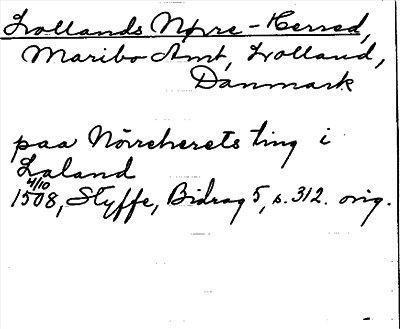 Lollands Nørre-Herred,
Maribo Amt, Lolland,
Danmark
paa Nörreherets ting i
Laland
4/10
1508, Styffe, Bidrag 5, s. 312. orig.